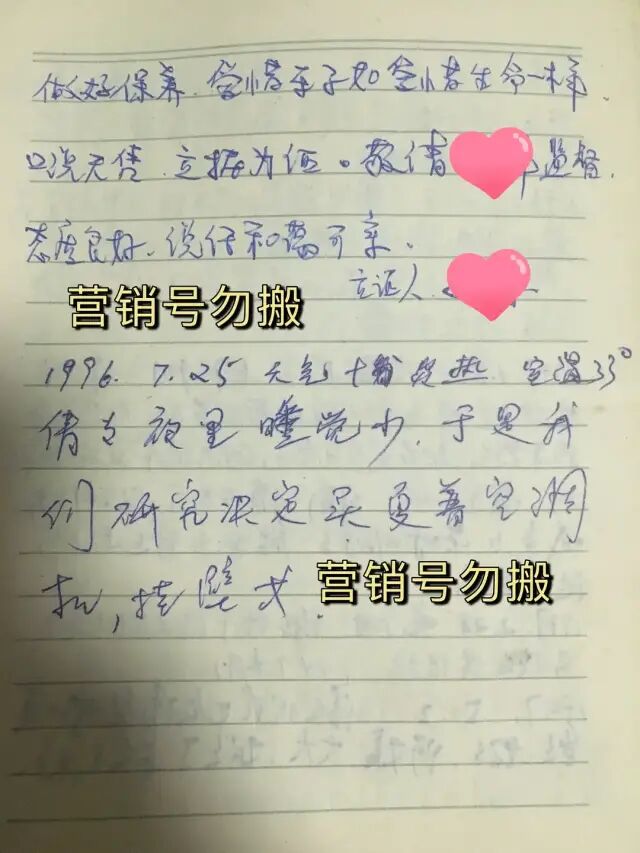 做好保养.爱惜车子如爱惜生命一样
口说无凭.立据为证。敬请 监督.
态度良好.说话和蔼可亲.
立证人
营销号勿搬
1996. 7.25 天气十分炎热. 室温33°
夜里睡觉少,于是我
们研究决定买夏普空调
机,挂壁式.
营销号勿搬